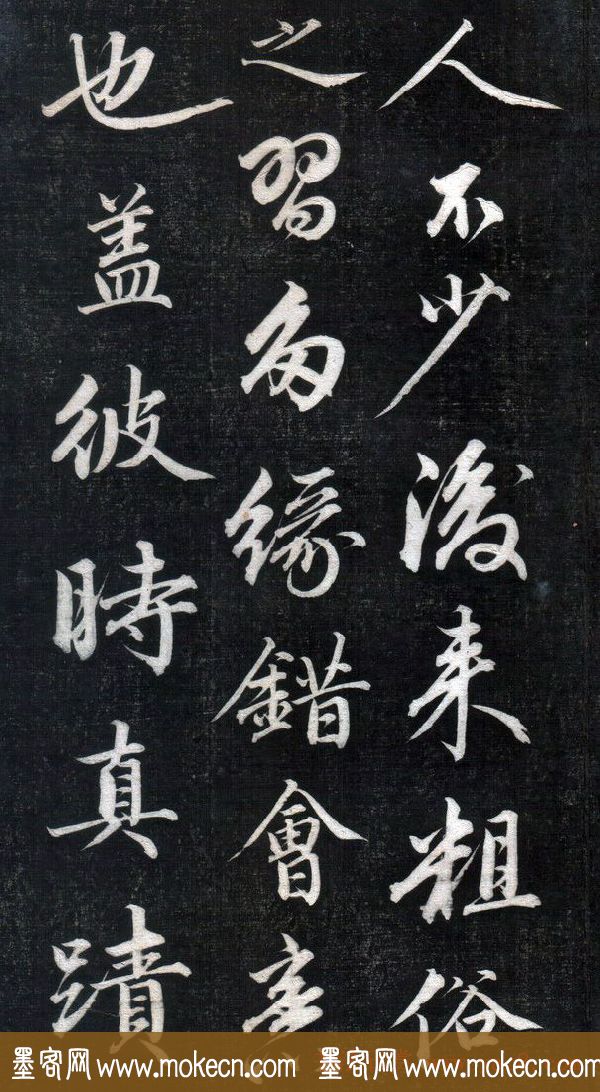 人不少後来粗俗
之習多緣錯會
也盖彼時真蹟
墨客网 www.mokecn.com 墨客网 www.mokecn.com